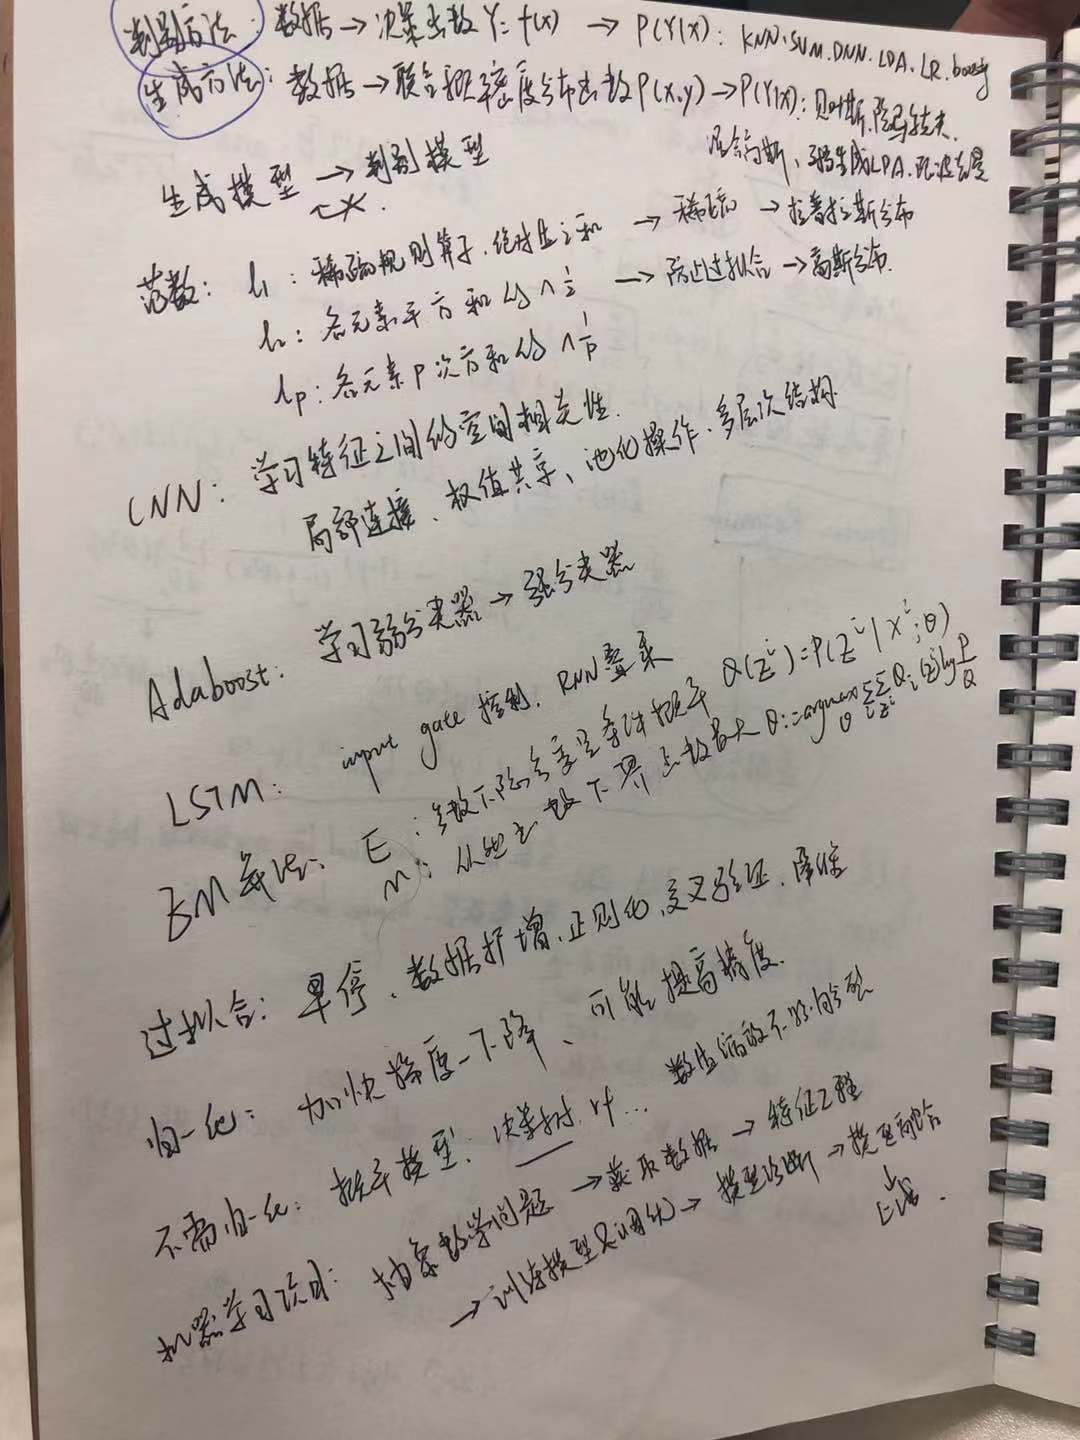 判别方法: 数据 → 决策函数 Y=f(x) → P(Y|X): KNN.SVM.DNN.LDA.LR.boosting
生成方法: 数据 → 联合概率密度分布函数P(X,y) → P(Y|X): 贝叶斯,隐马尔夫.
混合高斯、生成LDA、玻尔兹曼
生成模型 → 判别模型
范数: l₁: 稀疏规则算子.绝对值之和 → 稀疏 → 拉普拉斯分布
l₂: 各元素平方和的∧1/2 → 防止过拟合 → 高斯分布.
lp: 各元素P次方和的∧1/p
CNN: 学习特征之间的空间相关性.
局部连接、权值共享、池化操作.多层次结构
Adaboost: 学习弱分类器 → 强分类器
LSTM: input gate 控制. RNN叠乘
EM算法: E: 参数下隐含变量条件概率 Q(Zⁱ)=P(Zⁱ|Xⁱ;θ)
M: 下界函数最大 θ:=argmax_θ ΣᵢΣ_zⁱ Qᵢ(Zⁱ)log P/Q
过拟合: 早停、数据扩增.正则化.交叉验证.降维
归一化: 加快梯度下降、可能提高精度.
不需归一化: 概率模型: 决策树. rf... 数值缩放不影响
机器学习项目: 抽象数学问题 → 获取数据 → 特征工程
→ 训练模型及调优 → 模型诊断 → 模型融合
↓
上线.